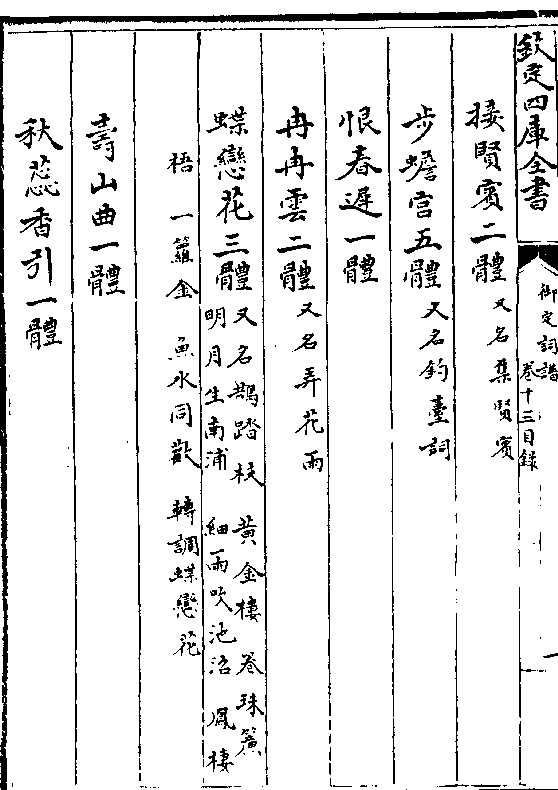 欽定四庫全書
御定詞譜
卷十三目錄
接賢賓二體 又名集賢賓
步蟾宮五體 又名釣臺詞
恨春遲一體
冉冉雲二體 又名弄花雨
蝶戀花三體 又名鵲踏枝 黃金樓 卷珠簾
明月生南浦 細雨吹池沼 鳳棲
梧 一籮金 魚水同歡 轉調蝶戀花
壽山曲一體
秋蕊香引一體